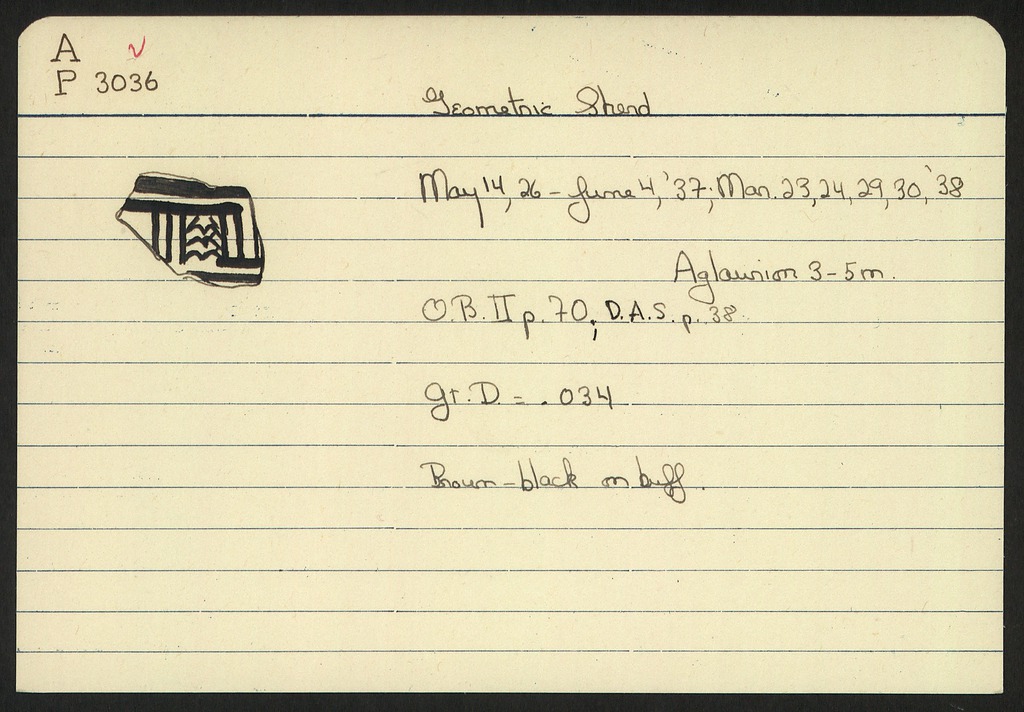 A
P 3036
Geometric Sherd
May 14, 26 - June 4, '37; Mar. 23, 24, 29, 30, '38
Aglaurion 3-5m.
O.B. II p. 70; D.A.S. p. 38
Gr. D. = .034
Brown-black on buff.